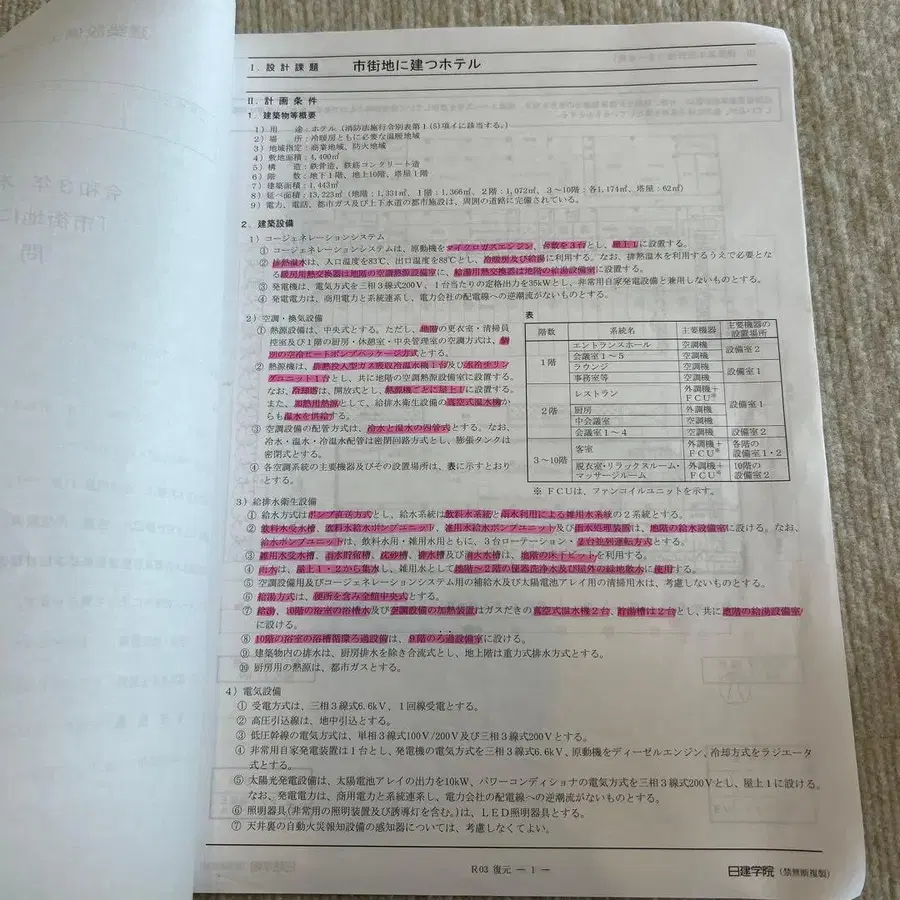 I. 設計課題 市街地に建つホテル
II. 計画条件
1. 建築物等概要
1) 用 途:ホテル(消防法施行令別表第1(5)項イに該当する。)
2) 場 所:冷暖房ともに必要な温暖地域
3) 地域指定:商業地域、防火地域
4) 敷地面積:4,400㎡
5) 構 造:鉄骨造、鉄筋コンクリート造
6) 階 数:地下1階、地上10階、塔屋1階
7) 建築面積:1,443㎡
8) 延べ面積:13,223㎡(地階:1,331㎡、1階:1,366㎡、2階:1,072㎡、3~10階:各1,174㎡、塔屋:62㎡)
9) 電力、電話、都市ガス及び上下水道の都市施設は、周囲の道路に完備されている。
2. 建築設備
1) コージェネレーションシステム
① コージェネレーションシステムは、原動機をマイクロガスエンジン、台数を3台とし、屋上1に設置する。
② 排熱温水は、入口温度を83℃、出口温度を88℃とし、冷暖房及び給湯に利用する。なお、排熱温水を利用するうえで必要とな
る暖房用熱交換器は地階の空調熱源設備室に、給湯用熱交換器は地階の給湯設備室に設置する。
③ 発電機は、電気方式を三相3線式200V、1台当たりの定格出力を35kWとし、非常用自家発電設備と兼用しないものとする。
④ 発電電力は、商用電力と系統連系し、電力会社の配電線への逆潮流がないものとする。
2) 空調・換気設備
① 熱源設備は、中央式とする。ただし、地階の更衣室・清掃員
控室及び1階の厨房・休憩室・中央管理室の空調方式は、個
別の空冷ヒートポンプパッケージ方式とする。
② 熱源機は、排熱投入型ガス吸収冷温水機1台及び水冷チリン
グユニット1台とし、共に地階の空調熱源設備室に設置する。
なお、冷却塔は、開放式とし、熱源機ごとに屋上1に設置する。
また、加熱用熱源として、給排水衛生設備の真空式温水機か
らも温水を供給する。
③ 空調設備の配管方式は、冷水と温水の四管式とする。なお、
冷水・温水・冷温水配管は密閉回路方式とし、膨張タンクは
密閉式とする。
④ 各空調系統の主要機器及びその設置場所は、表に示すとおり
とする。
表
階数 系統名 主要機器 主要機器の設置場所
1階 エントランスホール 空調機 設備室2
会議室1~5 空調機
ラウンジ 空調機 設備室1
事務室等 空調機
2階 レストラン 外調機+FCU※ 設備室1
厨房 外調機
中会議室 空調機
会議室1~4 空調機 設備室2
3~10階 客室 外調機+FCU※ 各階の設備室1・2
脱衣室・リラックスルーム・マッサージルーム 外調機+FCU※ 10階の設備室2
※ FCUは、ファンコイルユニットを示す。
3) 給排水衛生設備
① 給水方式はポンプ直送方式とし、給水系統は飲料水系統と雨水利用による雑用水系統の2系統とする。
② 飲料水受水槽、飲料水給水ポンプユニット、雑用水給水ポンプユニット及び雨水処理装置は、地階の給水設備室に設ける。なお、
給水ポンプユニットは、飲料水用・雑用水用ともに、3台ローテーション・2台並列運転方式とする。
③ 雑用水受水槽、雨水貯留槽、沈砂槽、排水槽及び消火水槽は、地階の床下ピットを利用する。
④ 雨水は、屋上1・2から集水し、雑用水として地階~2階の便器洗浄水及び屋外の緑地散水に使用する。
⑤ 空調設備用及びコージェネレーションシステム用の補給水及び太陽電池アレイ用の清掃用水は、考慮しないものとする。
⑥ 給湯方式は、便所を含み全館中央式とする。
⑦ 給湯、10階の浴室の浴槽水及び空調設備の加熱装置はガスだきの真空式温水機2台、貯湯槽は2台とし、共に地階の給湯設備室
に設ける。
⑧ 10階の浴室の浴槽循環ろ過設備は、9階のろ過設備室に設ける。
⑨ 建築物内の排水は、厨房排水を除き合流式とし、地上階は重力式排水方式とする。
⑩ 厨房用の熱源は、都市ガスとする。
4) 電気設備
① 受電方式は、三相3線式6.6kV、1回線受電とする。
② 高圧引込線は、地中引込とする。
③ 低圧幹線の電気方式は、単相3線式100V/200V及び三相3線式200Vとする。
④ 非常用自家発電装置は1台とし、発電機の電気方式を三相3線式6.6kV、原動機をディーゼルエンジン、冷却方式をラジエータ
式とする。
⑤ 太陽光発電設備は、太陽電池アレイの出力を10kW、パワーコンディショナの電気方式を三相3線式200Vとし、屋上1に設ける。
なお、発電電力は、商用電力と系統連系し、電力会社の配電線への逆潮流がないものとする。
⑥ 照明器具(非常用の照明装置及び誘導灯を含む。)は、LED照明器具とする。
⑦ 天井裏の自動火災報知設備の感知器については、考慮しなくてよい。
R03 復元 ― 1 ―
日建学院(禁無断複製)